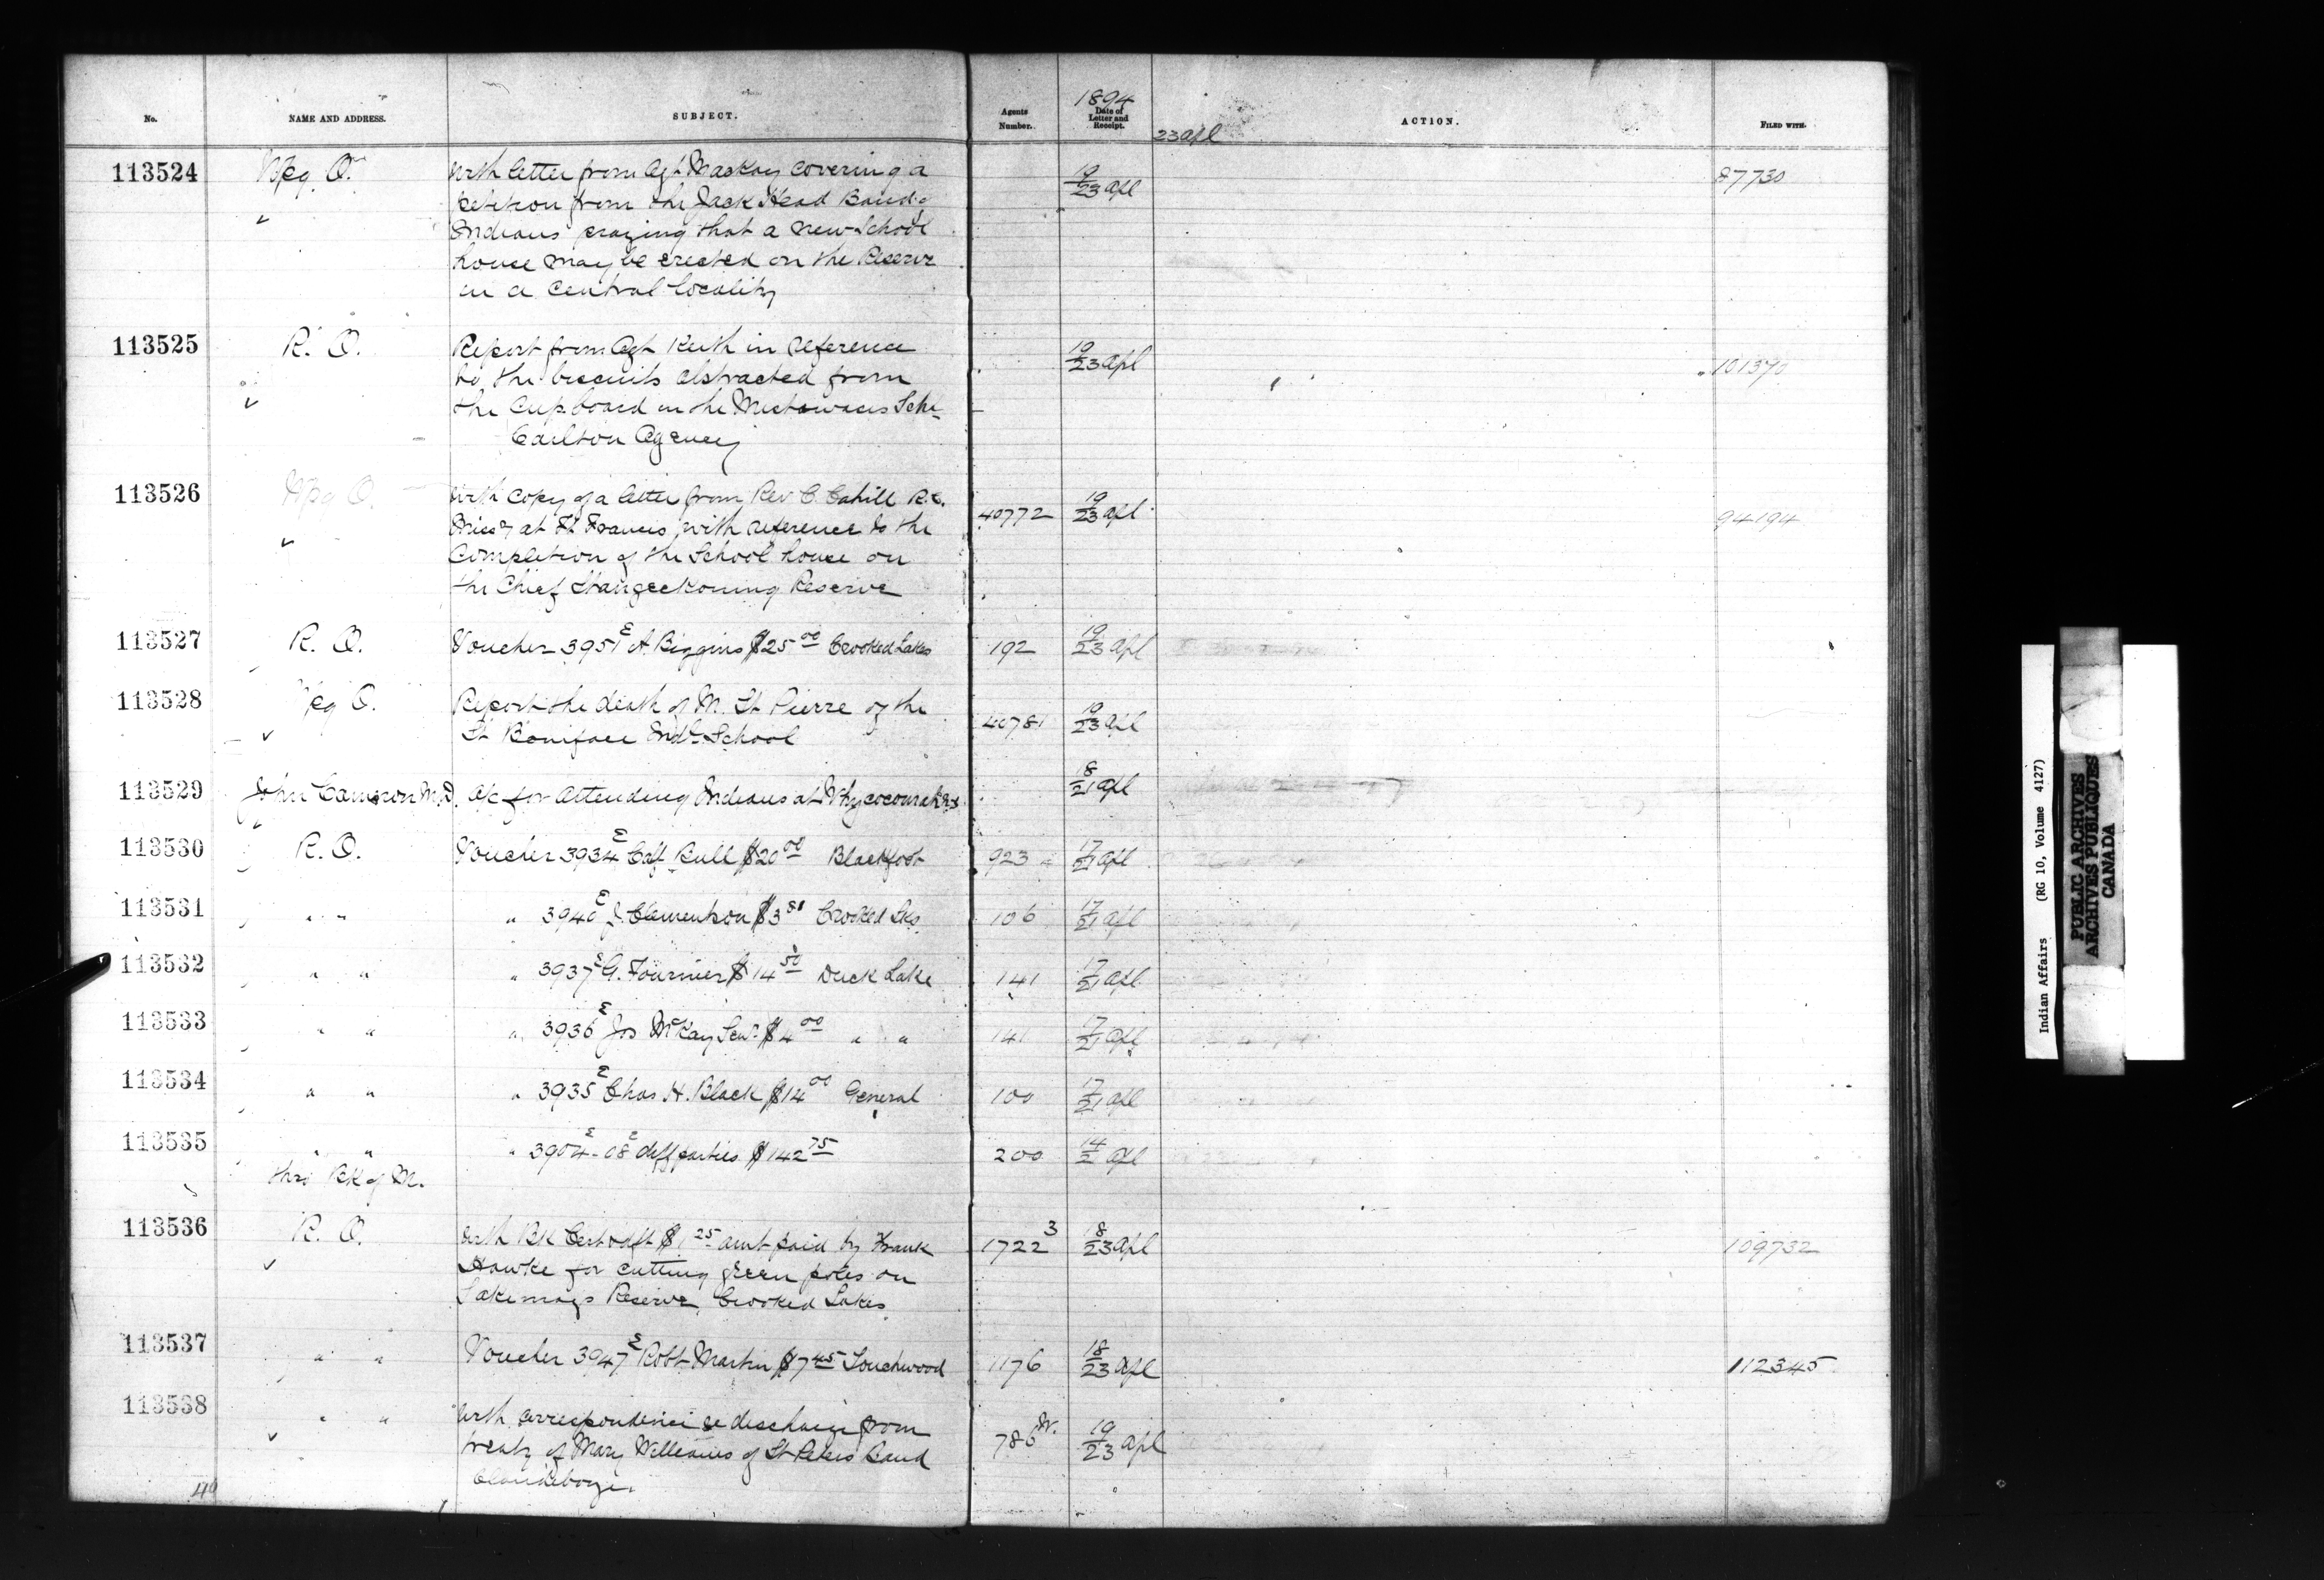 No. NAME AND ADDRESS. SUBJECT. Agents Number. 1894 Date of Letter and Receipt. ACTION. FILED WITH.
23 apl
113524 Wpg O. With letter from Agt Mackay covering a 19/23 apl 87730
petition from the Jack Head Band of
Indians praying that a new School
house may be erected on the Reserve
in a central locality
113525 R. O. Report from Agt Keith in reference 19/23 apl 101370
to the biscuits abstracted from
the cupboard in the Mistawasis Schl
Carlton Agency
113526 Wpg O. With copy of a letter from Rev C. Cahill R.C. 40772 19/23 apl 94194
Missy at Ft Francis, with reference to the
Completion of the School house on
the Chief Stangeckoming Reserve
113527 R. O. Voucher 3951 E A. Biggins $25 00 Crooked Lakes 192 19/23 apl
113528 Wpg O. Report the death of M. St Pierre of the 40781 19/23 apl
St Boniface Indl School
113529 John Cameron M.D. a/c for attending Indians at Whycocomah N.S. 18/21 apl
113530 R. O. Voucher 3934 E Calf Bull $20 00 Blackfoot 923 17/21 apl
113531 " " " 3940 E J. Clementson $3 81 Crooked Lks 106 17/21 apl
113532 " " " 3937 E G. Fournier $14 50 Duck Lake 141 17/21 apl
113533 " " " 3936 E Jos McKay Senr $4 00 " " 141 17/21 apl
113534 " " " 3935 E Chas H. Black $14 00 General 100 17/21 apl
113535 " " " 3904 E - 08 E diff parties $142 75 200 14/21 apl
thro Bk of M.
113536 R. O. With Bk Cert dft $1 25 amt paid by Frank 1722 3 18/23 apl 109732
Hawke for cutting green poles on
Sakemays Reserve, Crooked Lakes
113537 " " Voucher 3947 E Robt Martin $7 45 Touchwood 1176 18/23 apl 112345
113538 " " With correspondence re discharge from 786 W. 19/23 apl
treaty of Mary Williams of St Peters Band
Clandeboye
40
Indian Affairs (RG 10, Volume 4127)
PUBLIC ARCHIVES
ARCHIVES PUBLIQUES
CANADA